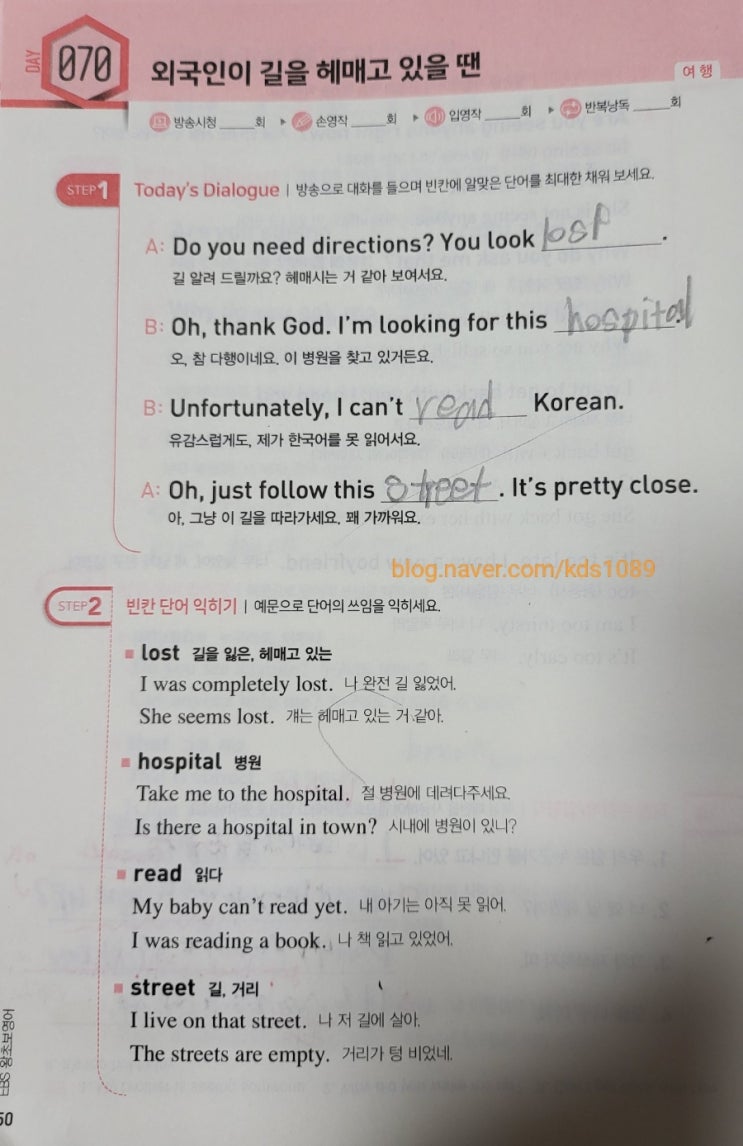 DAY 070 외국인이 길을 헤매고 있을 땐
여행
방송시청 _____회 ▶ 손영작 _____회 ▶ 입영작 _____회 ▶ 반복낭독 _____회
STEP1 Today's Dialogue | 방송으로 대화를 들으며 빈칸에 알맞은 단어를 최대한 채워 보세요.
A: Do you need directions? You look lost.
길 알려 드릴까요? 헤매시는 거 같아 보여서요.
B: Oh, thank God. I'm looking for this hospital.
오, 참 다행이네요. 이 병원을 찾고 있거든요.
B: Unfortunately, I can't read Korean.
유감스럽게도, 제가 한국어를 못 읽어서요.
A: Oh, just follow this street. It's pretty close.
아, 그냥 이 길을 따라가세요. 꽤 가까워요.
blog.naver.com/kds1089
STEP2 빈칸 단어 익히기 | 예문으로 단어의 쓰임을 익히세요.
■ lost 길을 잃은, 헤매고 있는
I was completely lost. 나 완전 길 잃었어.
She seems lost. 걔는 헤매고 있는 거 같아.
■ hospital 병원
Take me to the hospital. 절 병원에 데려다주세요.
Is there a hospital in town? 시내에 병원이 있니?
■ read 읽다
My baby can't read yet. 내 아기는 아직 못 읽어.
I was reading a book. 나 책 읽고 있었어.
■ street 길, 거리
I live on that street. 나 저 길에 살아.
The streets are empty. 거리가 텅 비었네.
EBS 왕초보영어